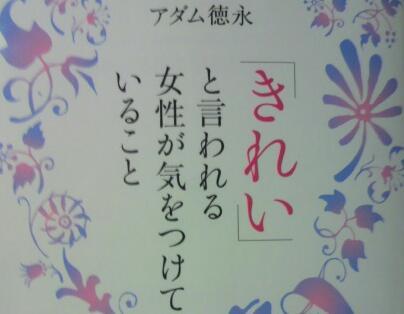 アダム徳永
「きれい」
と言われる
女性が気をつけて
いること